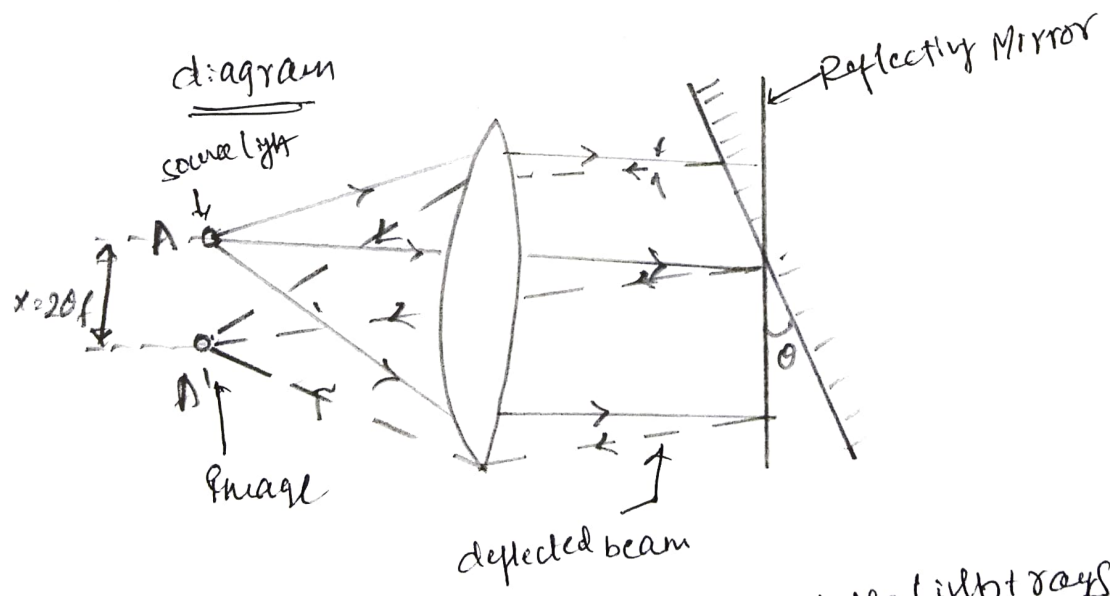 diagram
Reflecting Mirror
source light
A
x=2θf
θ
A'
Image
deflected beam
light rays